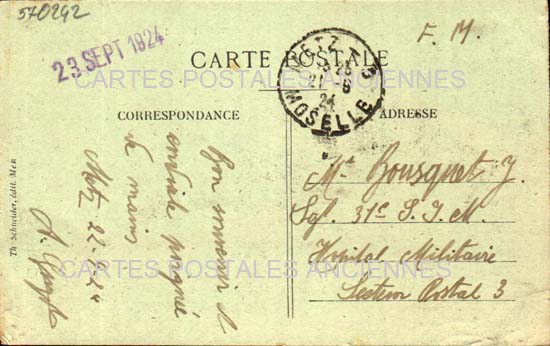 570242
23 SEPT 1924
F. M.
CARTE POSTALE
METZ
21 - 9
24
MOSELLE
CARTES POSTALES ANCIENNES
CORRESPONDANCE
ADRESSE
Bon souvenir &
cordiale poignée
de mains
Metz 22-9-24
A.
Mr Bousquet J.
31e S. I. M.
Hôpital Militaire
Secteur Postal 3
CARTES POSTALES ANCIENNES
Th. Schneider, édit. Metz